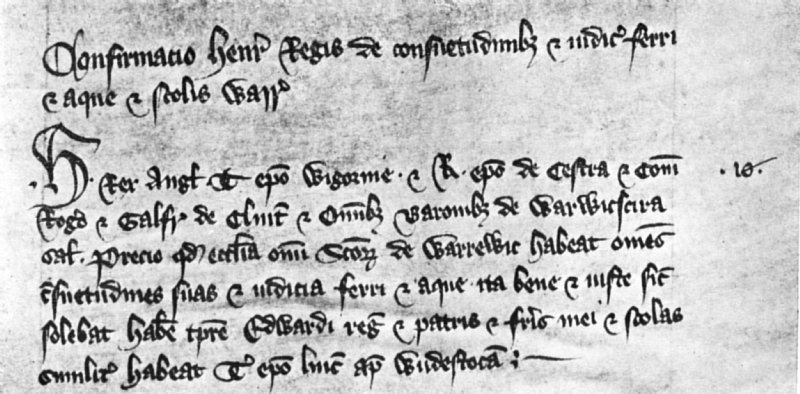 Confirmacio Henr' Regis de consuetudinibz & iudic' ferri
& aque & scolis Warr'
.H. Rex Angl' T epo Wigornie . & R . epo de Cestra & Com
Rogo & Galfr' de Clint' & Omibz Baronibz de Warwicscira
sal'. Precio qd ecclia omi Scorz de Warrewic habeat omes
csuetudines suas & iudicia ferri & aque ita bene & iuste sic
solebat habe tpre Edwardi reg' & patris & fris mei & scolas
similit' habeat T' epo linc' ap Wudestocam